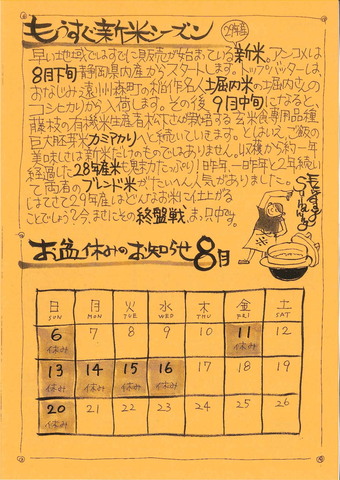 もうすぐ新米シーズン 29年産
早い地域ではすでに販売が始まっている新米。アンコメは
8月下旬静岡県内産からスタートします。トップバッターは
おなじみ遠州森町の稲作名人堀内米の堀内さんの
コシヒカリから入荷します。その後、9月中旬になると、
藤枝の有機米生産者松下さんが栽培する玄米食専用品種、
巨大胚芽米カミアカリへと続いていきます。とはいえ、ご飯の
美味しさは新米だけのものではありません。収穫から約一年
経過した28年産米も魅力たっぷり!昨年、一昨年と2年続い
て両者のブレンド米がたいへん人気がありました。
はてさて29年産はどんなお米に仕上がる
ことでしょう?今、まさにその終盤戦、まっ只中です。
お盆休みのお知らせ 8月
日 月 火 水 木 金 土
SUN MON TUE WED THU FRI SAT
6 7 8 9 10 11 12
休み 休み
13 14 15 16 17 18 19
休み 休み 休み 休み
20 21 22 23 24 25 26
休み